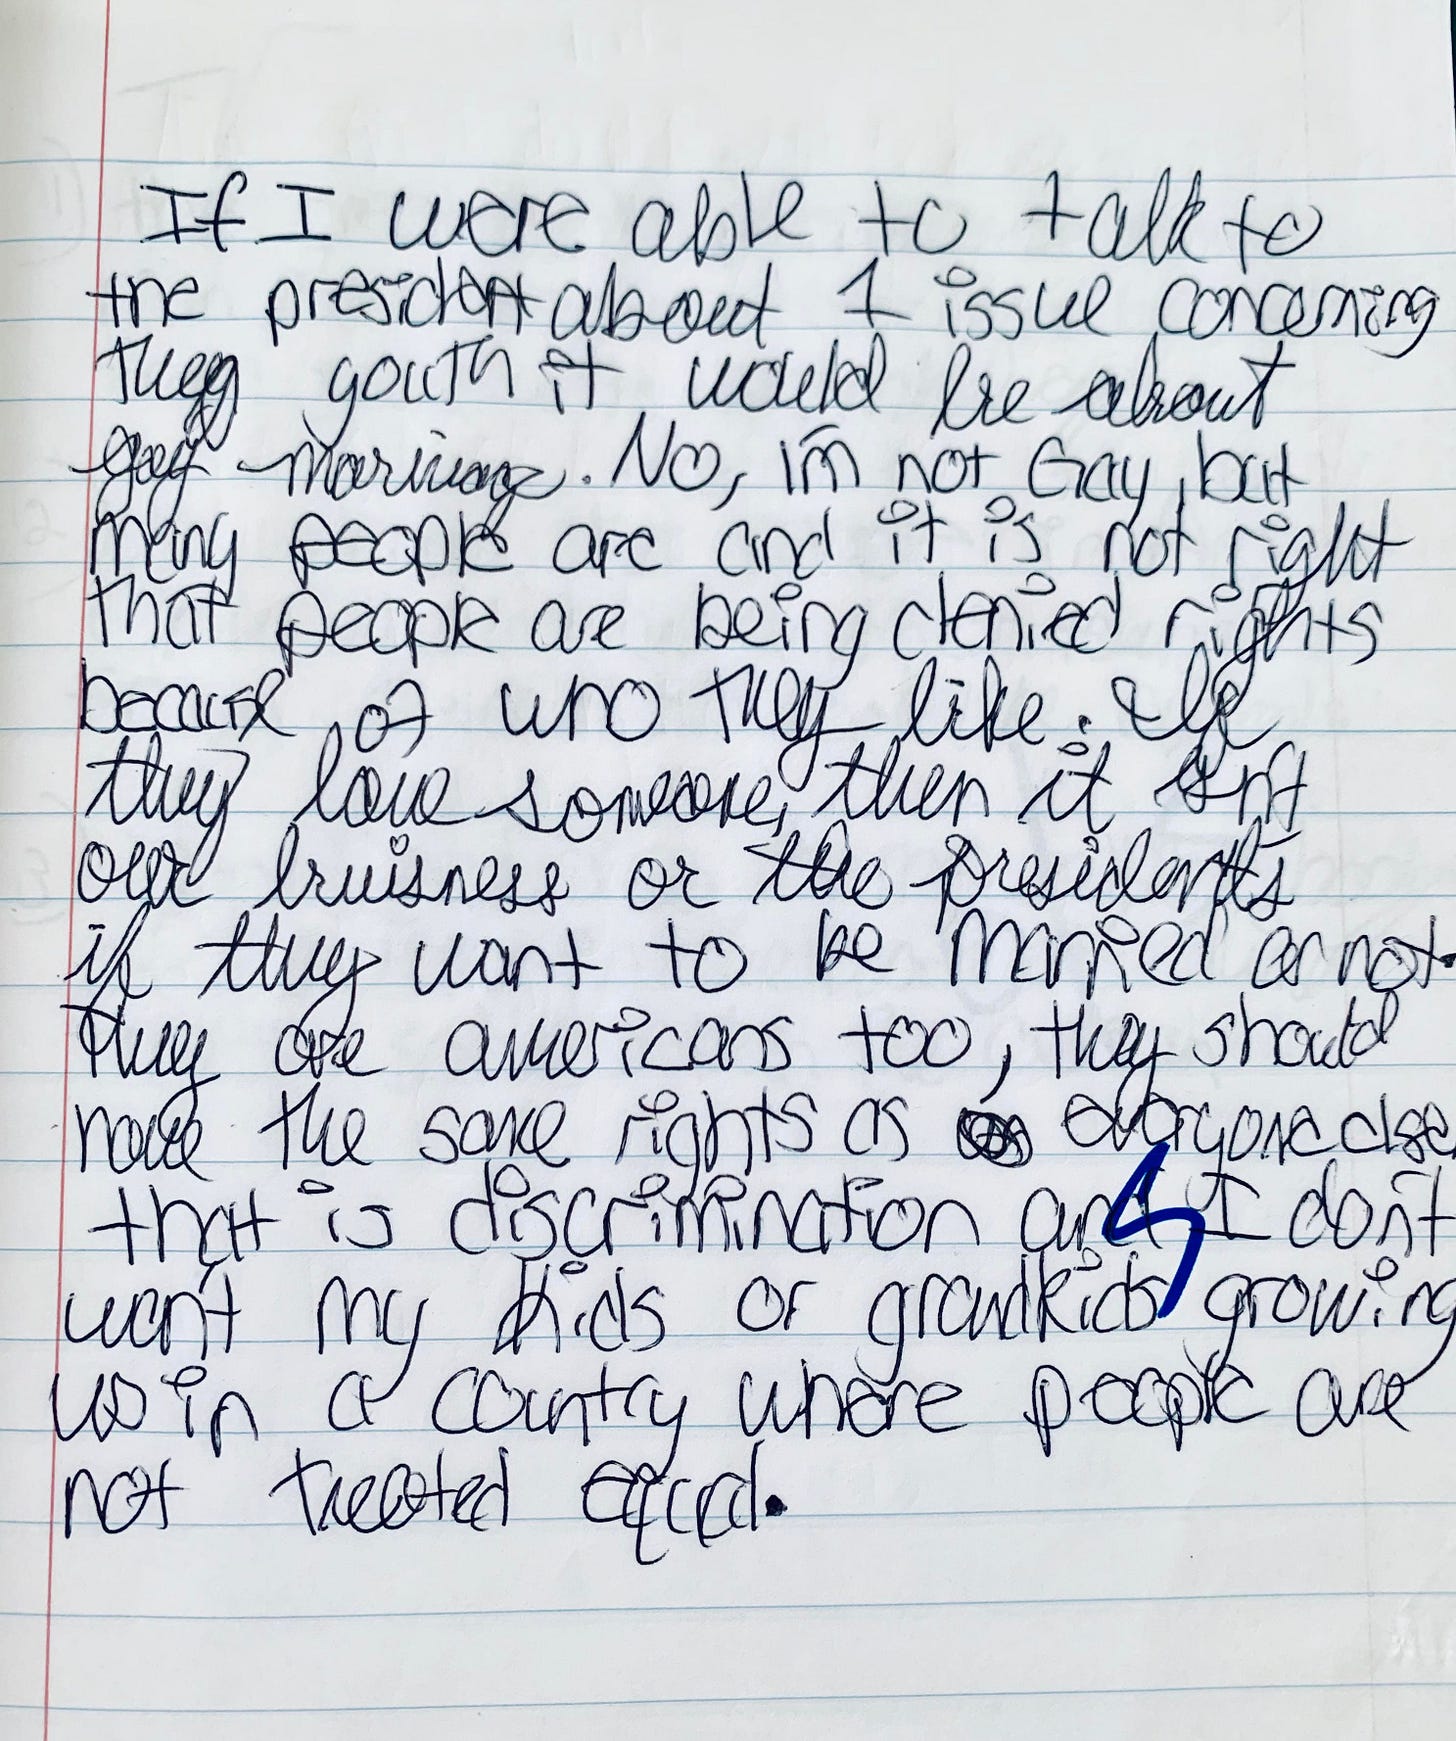 If I were able to talk to
the president about 1 issue concerning
they youth it would be about
gay marriage. No, im not Gay, but
many people are and it is not right
that people are being denied rights
because of who they like. If
they love someone, then it isn't
our buisness or the president's
if they want to be married or not.
They are americans too, they should
have the same rights as everyone else.
that is discrimination and I don't
want my kids or grandkids growing
up in a country where people are
not treated equal.